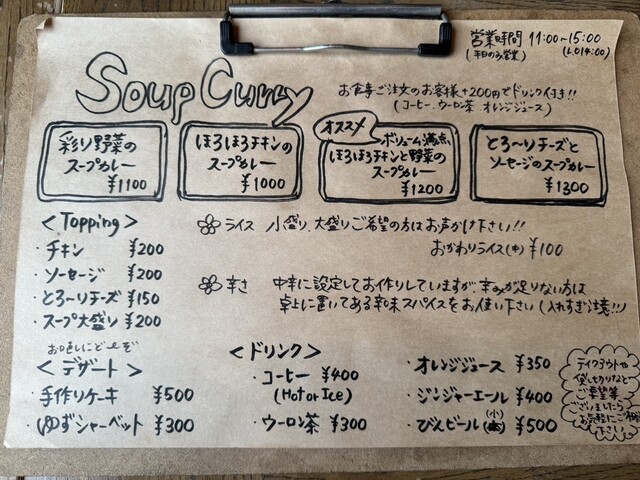 営業時間 11:00~15:00
(平日のみ営業) (L.O14:00)
Soup Curry
お食事ご注文のお客様+200円でドリンク付き!!
(コーヒー.ウーロン茶.オレンジジュース)
彩り野菜の
スープカレー
¥1100
ほろほろチキンの
スープカレー
¥1000
オススメ
ボリューム満点
ほろほろチキンと野菜の
スープカレー
¥1200
とろ〜りチーズと
ソーセージのスープカレー
¥1300
<Topping>
・チキン ¥200
・ソーセージ ¥200
・とろ〜りチーズ ¥150
・スープ大盛り ¥200
ライス 小盛り.大盛りご希望の方はお声かけ下さい!!
おかわりライス(中) ¥100
辛さ 中辛に設定してお作りしていますが、辛みが足りない方は
卓上に置いてある辛味スパイスをお使い下さい(入れすぎ注意!!)
お口直しにどうぞ
<デザート>
・手作りケーキ ¥500
・ゆずシャーベット ¥300
<ドリンク>
・コーヒー ¥400
(Hot or Ice)
・ウーロン茶 ¥300
・オレンジジュース ¥350
・ジンジャーエール ¥400
・びんビール(小) ¥500
テイクアウトや
貸し切りなど
ご要望等
ございましたら
お気軽にご相談
下さい